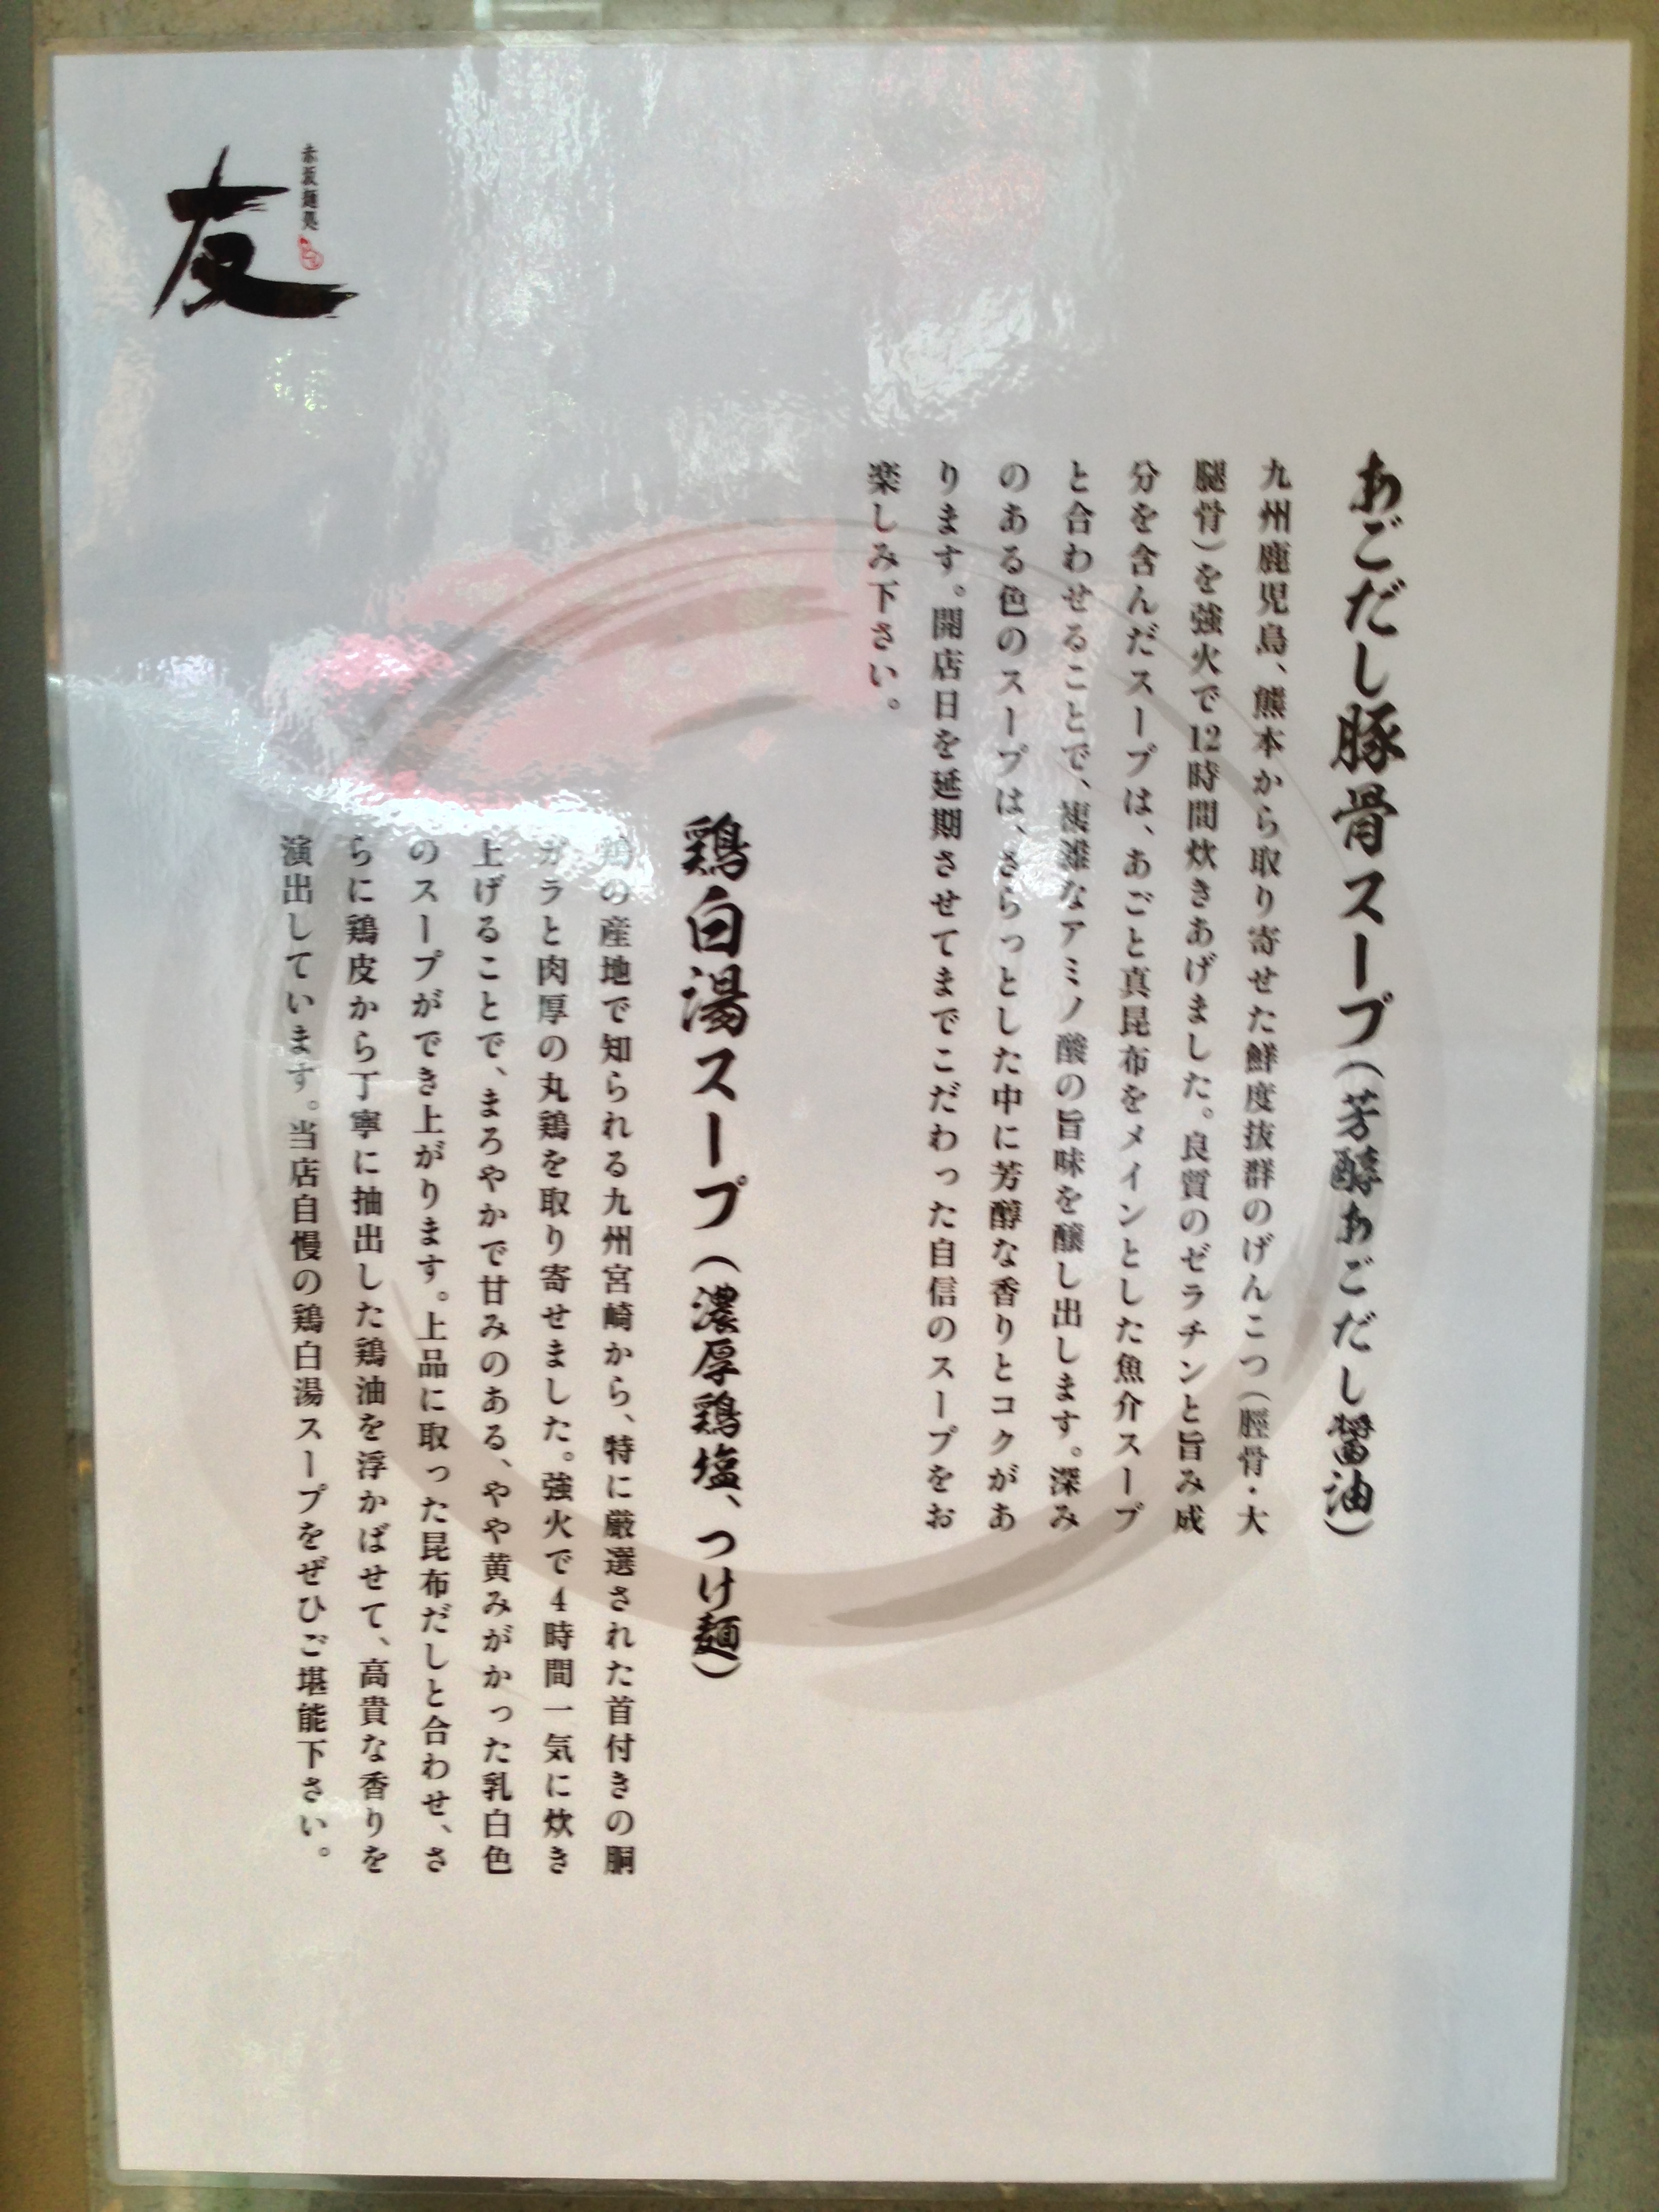 あごだし豚骨スープ（芳醇あごだし醤油）
九州鹿児島、熊本から取り寄せた鮮度抜群のげんこつ（脛骨・大
腿骨）を強火で12時間炊きあげました。良質のゼラチンと旨み成
分を含んだスープは、あごと真昆布をメインとした魚介スープ
と合わせることで、複雑なアミノ酸の旨味を醸し出します。深み
のある色のスープは、さらっとした中に芳醇な香りとコクがあ
ります。開店日を延期させてまでこだわった自信のスープをお
楽しみ下さい。
鶏白湯スープ（濃厚鶏塩、つけ麺）
鶏の産地で知られる九州宮崎から、特に厳選された首付きの胴
ガラと肉厚の丸鶏を取り寄せました。強火で4時間一気に炊き
上げることで、まろやかで甘みのある、やや黄みがかった乳白色
のスープができ上がります。上品に取った昆布だしと合わせ、さ
らに鶏皮から丁寧に抽出した鶏油を浮かばせて、高貴な香りを
演出しています。当店自慢の鶏白湯スープをぜひご堪能下さい。
赤坂麺処
友